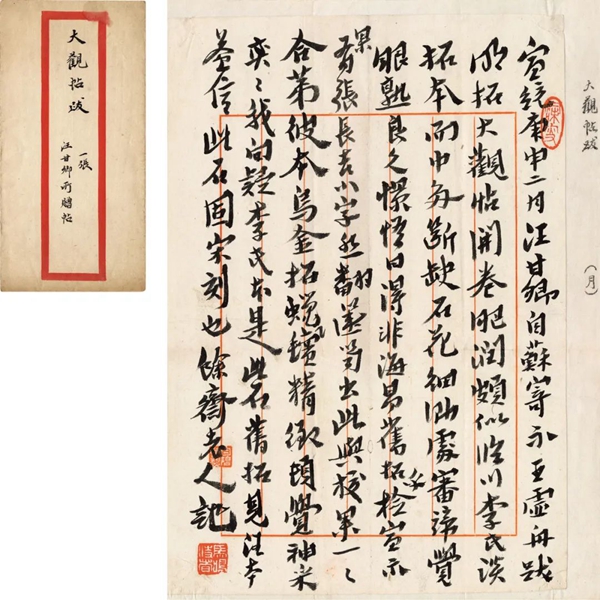 大觀帖跋
一張
汪甘卿所贈帖
大觀帖跋
（月）
宣統庚申二月汪甘卿自蘇寄示王虛舟跋
明拓大觀帖開卷肥潤頗似臨川李氏淡
拓本而中多斷缺石花細泐處審諦覺
眼熟良久憬悟曰得非海舊拓檢
有張長吉小字出此與校果一一
合第彼本烏金拓蟬精緻頓覺神采
奕〻我向疑李氏本是此石舊拓見汪本
益信此石固宋刻也餘齋老人記